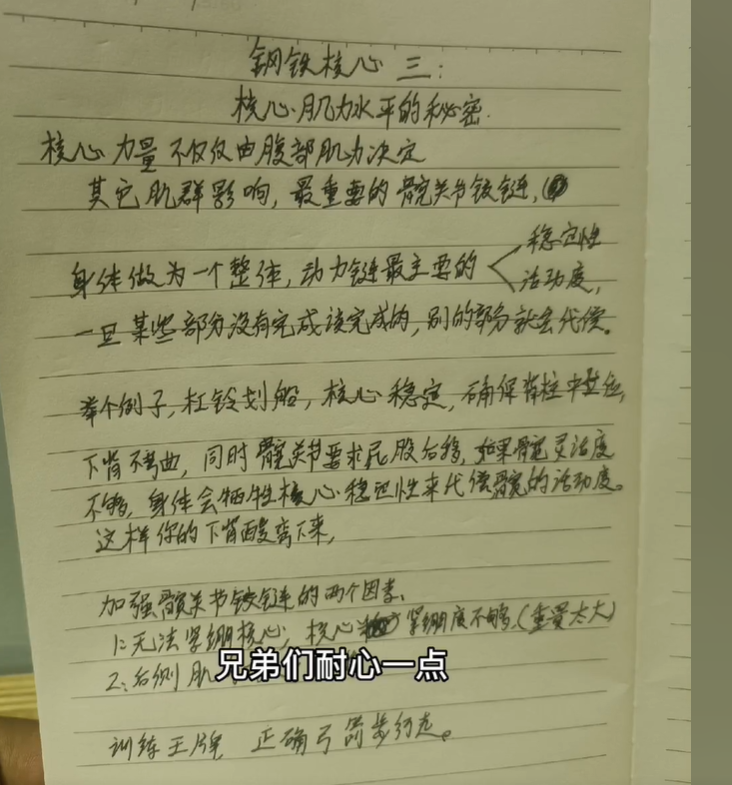 钢铁核心 三:
核心肌力水平的秘密.
核心力量不仅仅由腹部肌力决定
其它肌群影响,最重要的髋关节铰链,
稳定性
身体做为一个整体,动力链最主要的
活动度,
一旦某些部分没有完成该完成的,别的部分就会代偿。
举个例子,杠铃划船,核心稳定,确保脊柱中立位,
下背不弯曲,同时髋关节要求屁股后移,如果髋灵活度
不够,身体会牺牲核心稳定性来代偿髋的活动度。
这样你的下背 弯下来,
加强髋关节铰链的两个因素、
1:无法紧绷核心,核心 紧绷度不够(重量太大)
2:后侧肌
兄弟们耐心一点
训练王牌 正确弓箭步行走。